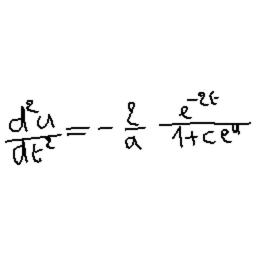 d²u/dt² = - 2/a e^{-2t}/(1+ce^u)